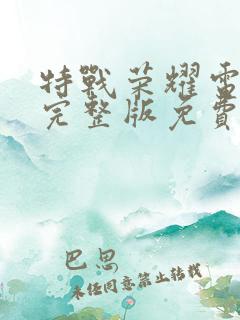 特戰荣耀電
完整版免費
巴思
未任同意禁止转载